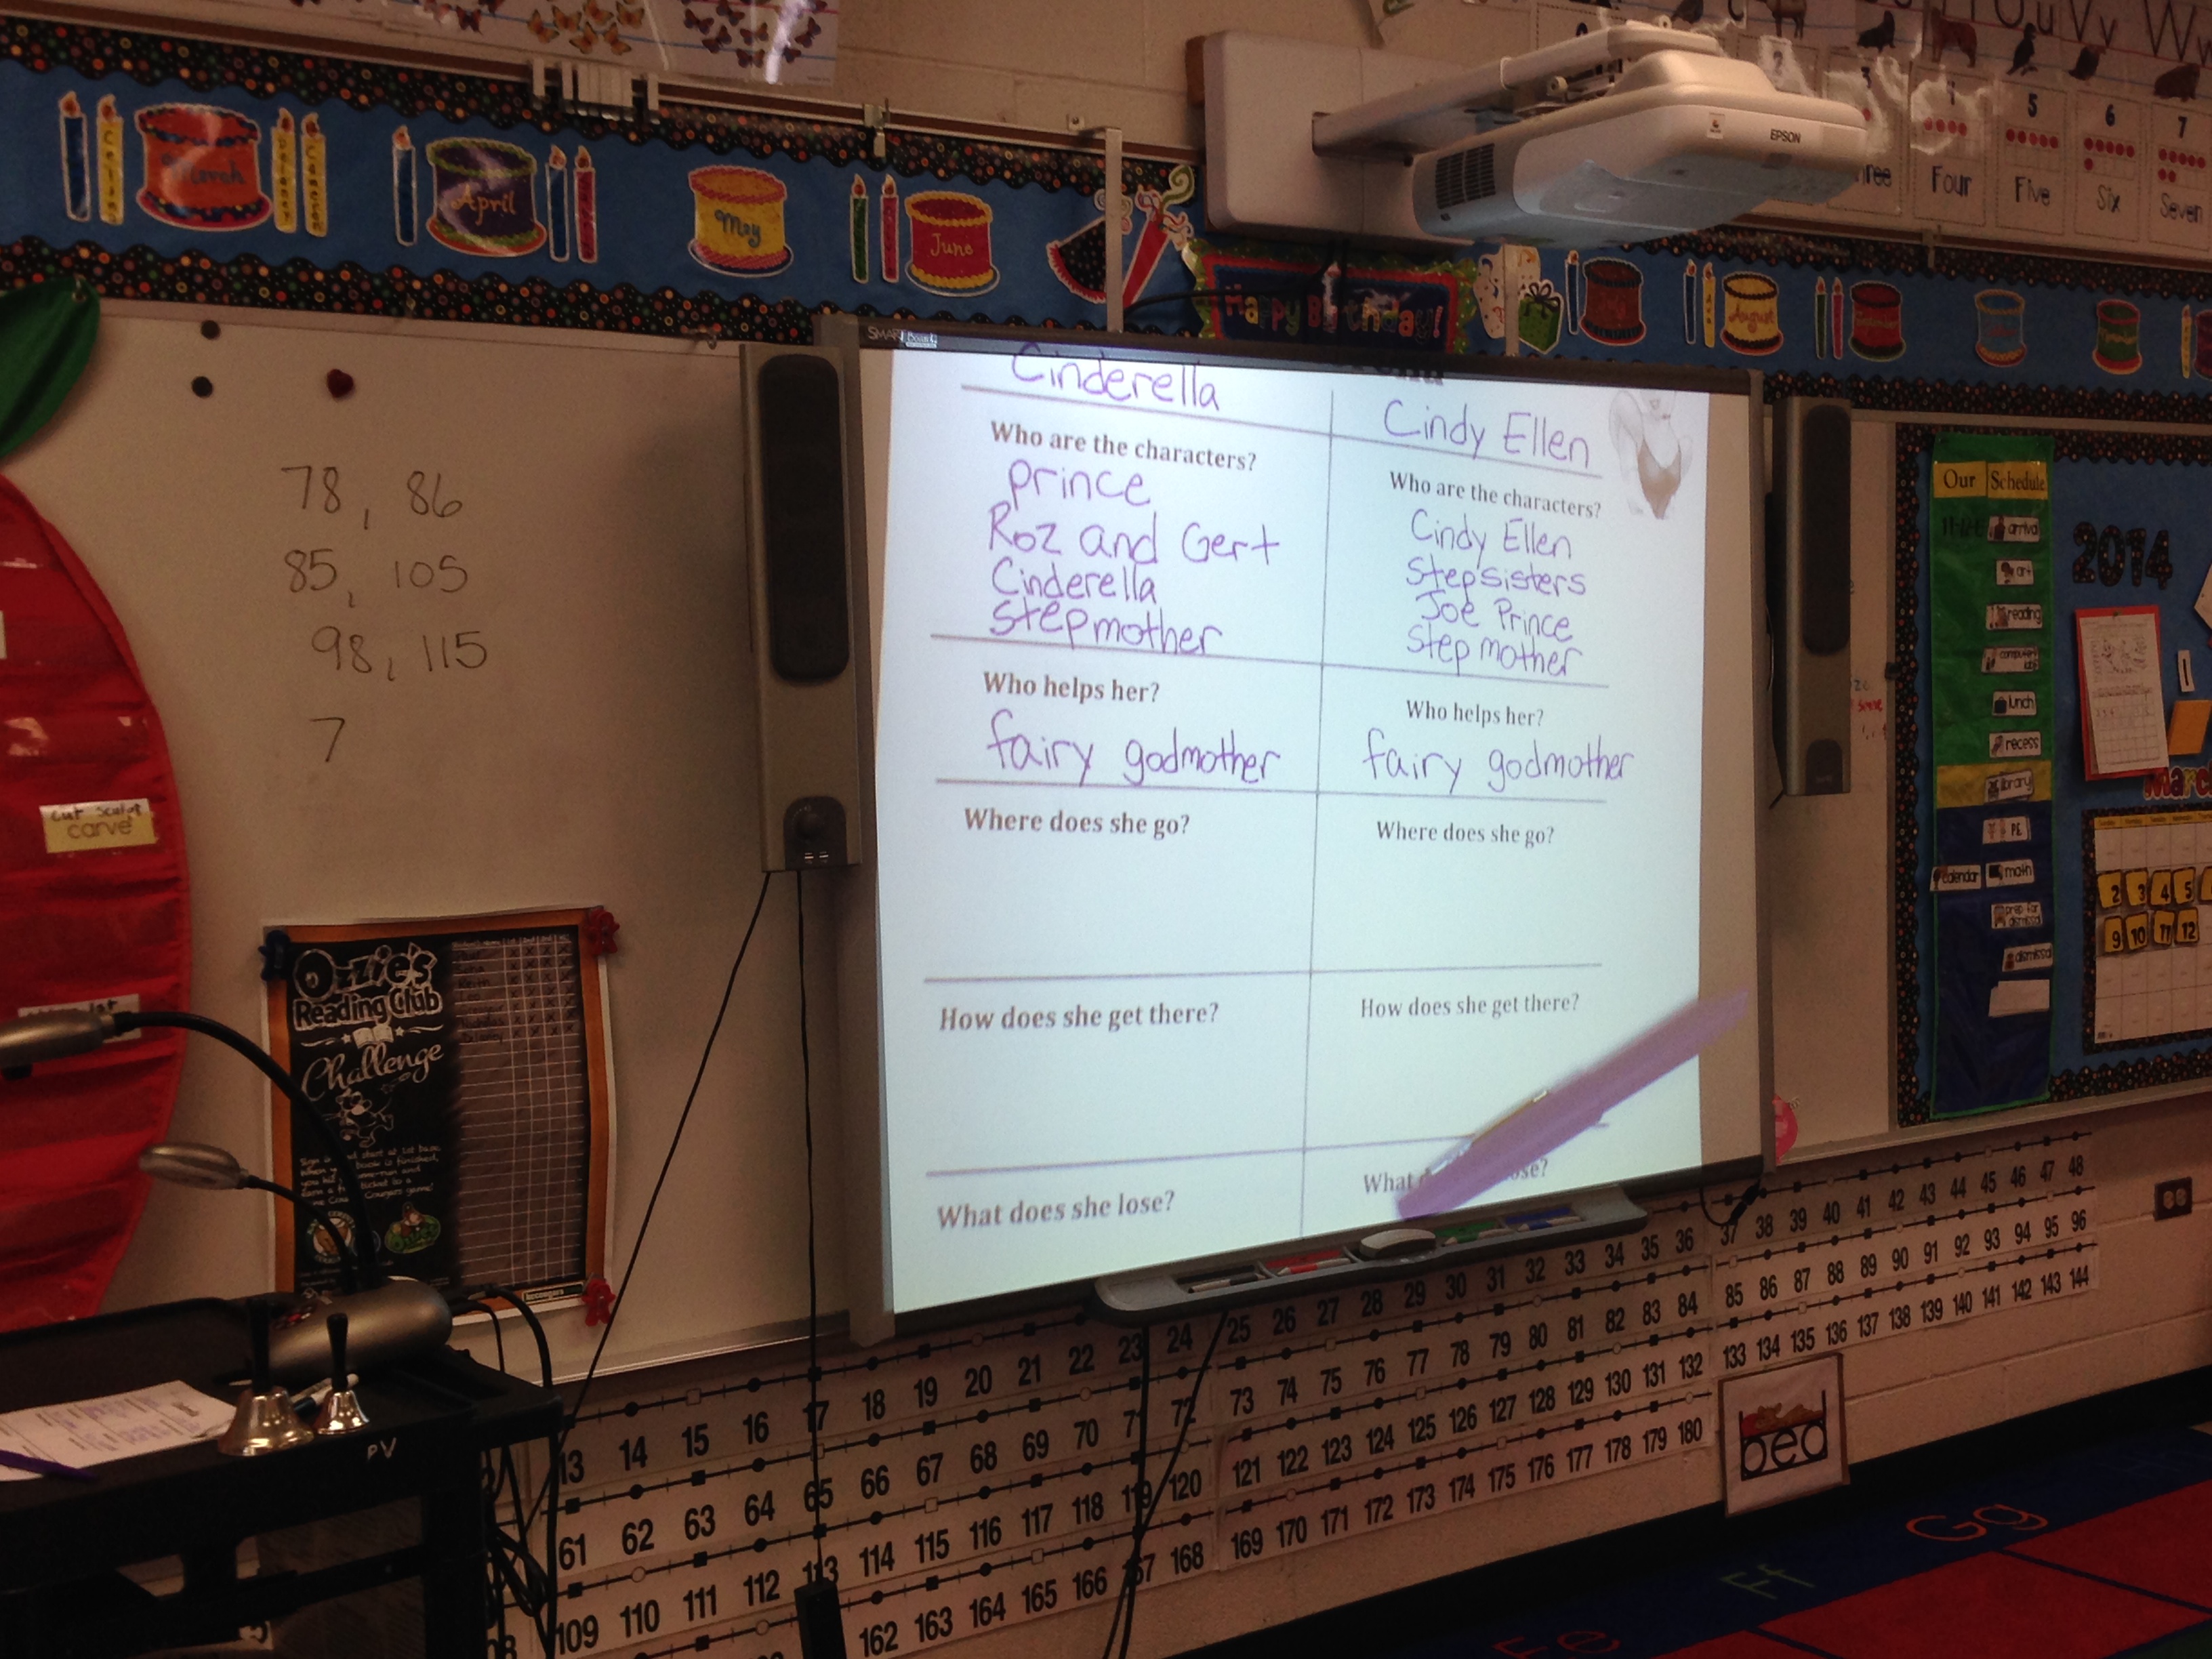 March
April
May
June
Happy Birthday!
August
EPSON
Uu Vv
5
6
7
Four
Five
Six
Seven
78, 86
85, 105
98, 115
7
Cut Sculpt
carve
Ozzie's
Reading Club
Challenge
Cinderella
Who are the characters?
prince
Roz and Gert
Cinderella
stepmother
Who helps her?
fairy godmother
Where does she go?
How does she get there?
What does she lose?
Cindy Ellen
Who are the characters?
Cindy Ellen
Stepsisters
Joe Prince
step mother
Who helps her?
fairy godmother
Where does she go?
How does she get there?
What
Our Schedule
arrival
art
reading
lunch
recess
library
PE
calendar math
dismissal
2014
2 3 4 5
9 10 11 12
PV
13 14 15 16 17 18 19 20 21 22 23 24 25 26 27 28 29 30 31 32 33 34 35 36 37 38 39 40 41 42 43 44 45 46 47 48
61 62 63 64 65 66 67 68 69 70 71 72 73 74 75 76 77 78 79 80 81 82 83 84 85 86 87 88 89 90 91 92 93 94 95 96
109 110 111 112 113 114 115 116 117 118 119 120 121 122 123 124 125 126 127 128 129 130 131 132 133 134 135 136 137 138 139 140 141 142 143 144
162 163 164 165 166 167 168 169 170 171 172 173 174 175 176 177 178 179 180
bed
Gg
Ff
Ee